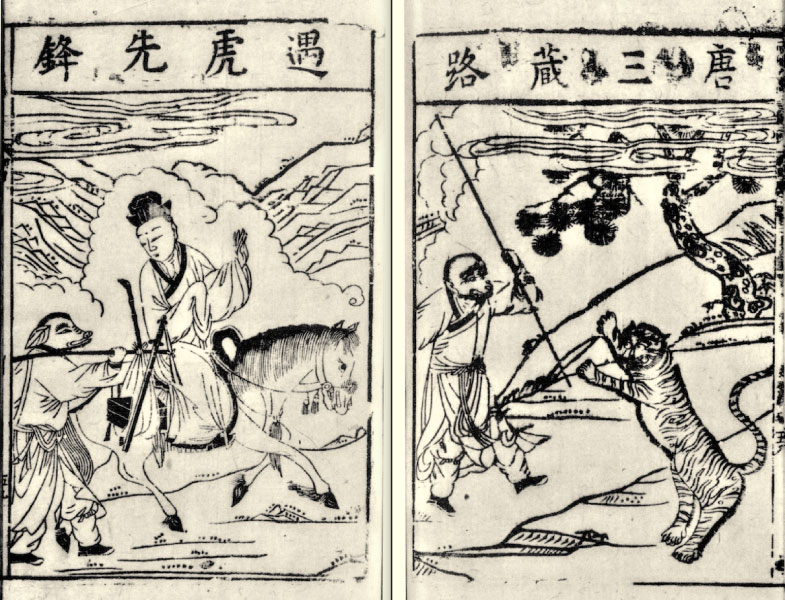 唐三蔵路
遇虎先鋒